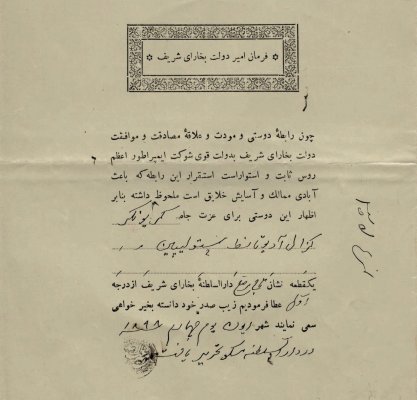 فرمان امیر دولت بخارای شریف
چون رابطهٔ دوستی و مودت و علاقهٔ مصادقت و موافقت
دولت بخارای شریف بدولت قوی شوکت ایمپراطور اعظم
روس ثابت و استواراست استقرار این رابطه که باعث
آبادی ممالک و آسایش خلایق است ملحوظ داشته بنابر
اظهار این دوستی برای عزت جاه
یکقطعه نشان داراالسلطنهٔ بخارای شریف ازدرجهٔ
اول عطا فرمودیم زیب صدر خود دانسته بخیر خواهی
سعی نمایند شهر یوم چهارم ۱۸۹۸
در دارالسلطنه مسکو تحریر یافت